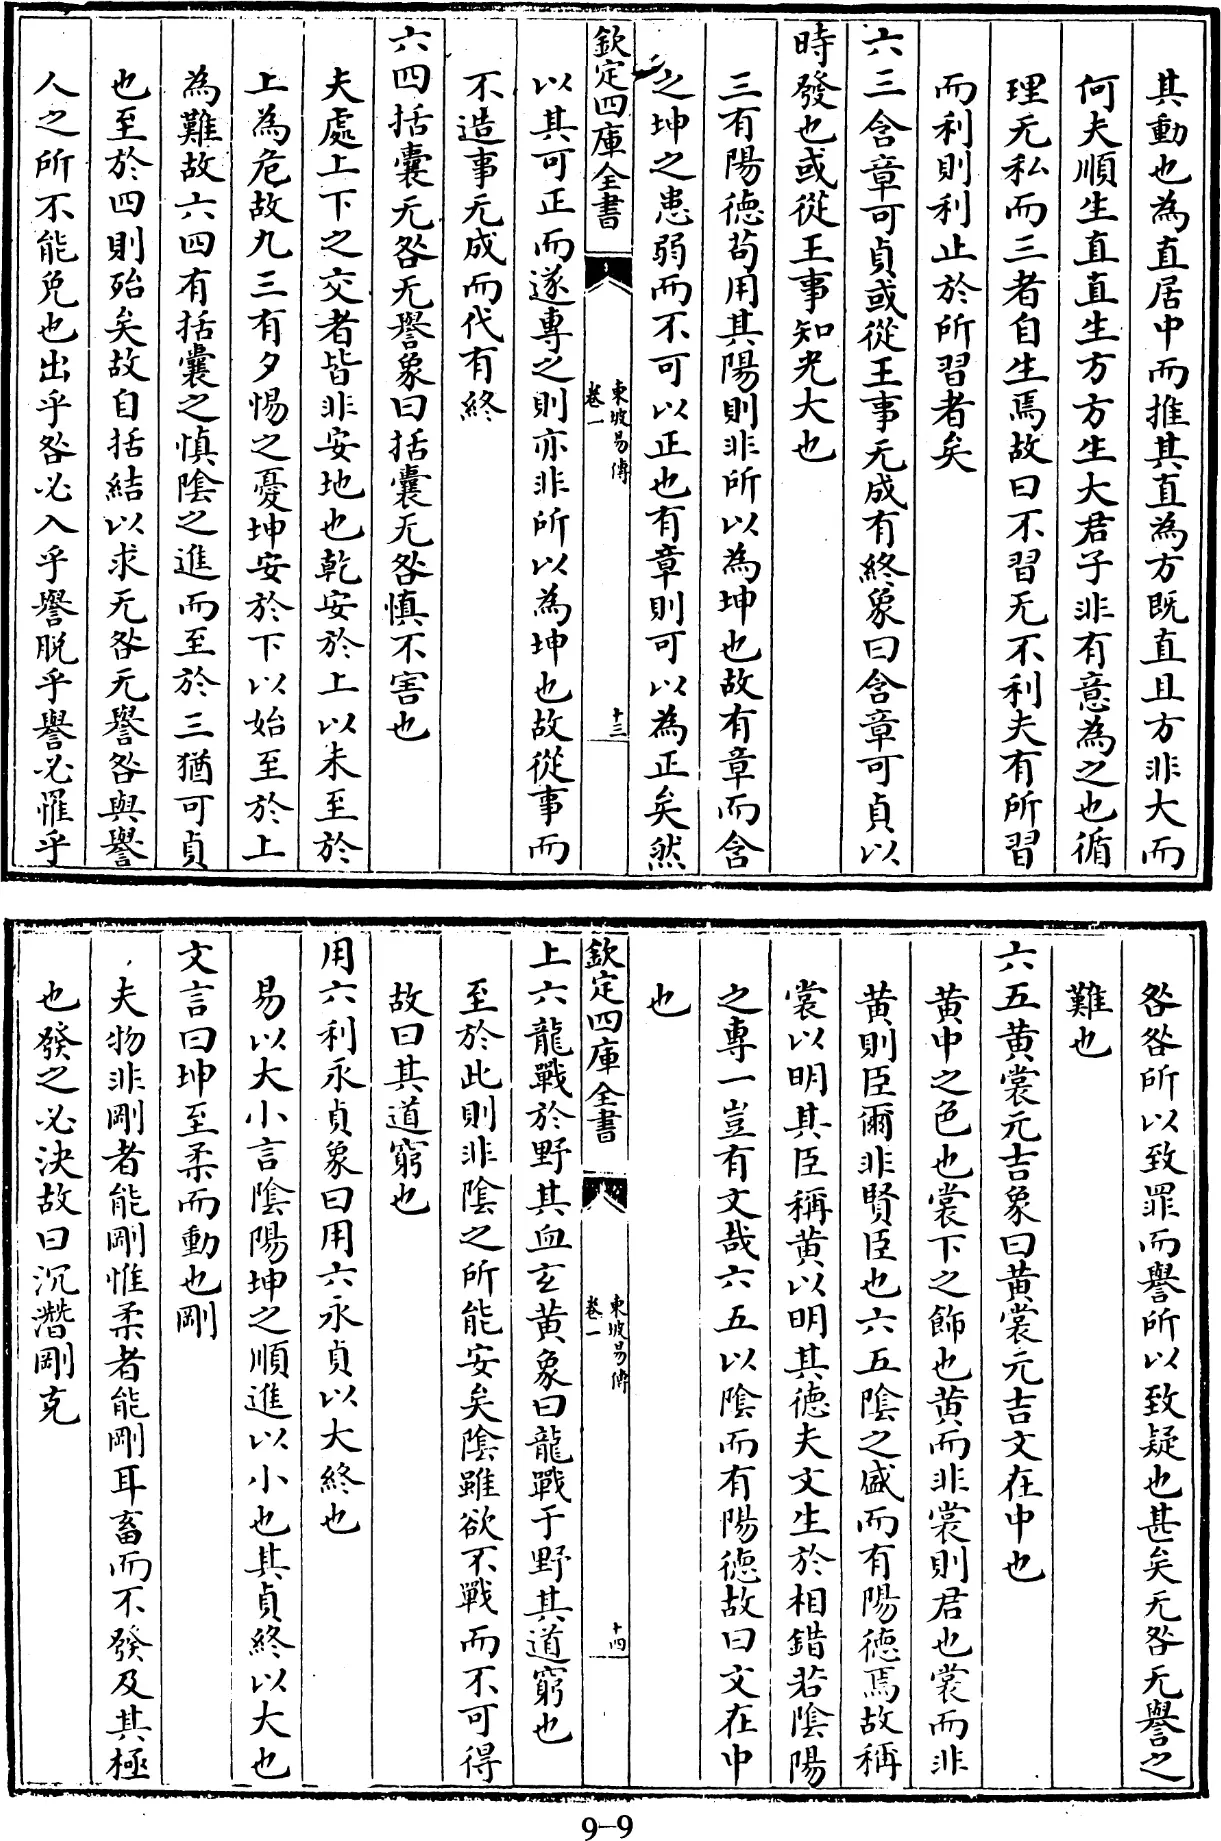 其動也為直居中而推其直為方既直且方非大而
何夫順生直直生方方生大君子非有意為之也循
理无私而三者自生焉故曰不習无不利夫有所習
而利則利止於所習者矣
六三含章可貞或從王事无成有終象曰含章可貞以
時發也或從王事知光大也
三有陽德苟用其陽則非所以為坤也故有章而含
之坤之患弱而不可以正也有章則可以為正矣然
欽定四庫全書
東坡易傳
卷一
十三
以其可正而遂專之則亦非所以為坤也故從事而
不造事无成而代有終
六四括囊无咎无譽象曰括囊无咎慎不害也
夫處上下之交者皆非安地也乾安於上以未至於
上為危故九三有夕惕之憂坤安於下以始至於上
為難故六四有括囊之慎陰之進而至於三猶可貞
也至於四則殆矣故自括結以求无咎无譽咎與譽
人之所不能免也出乎咎必入乎譽脱乎譽必罹乎
咎咎所以致罪而譽所以致疑也甚矣无咎无譽之
難也
六五黄裳元吉象曰黄裳元吉文在中也
黄中之色也裳下之飾也黄而非裳則君也裳而非
黄則臣爾非賢臣也六五陰之盛而有陽德焉故稱
裳以明其臣稱黄以明其德夫文生於相錯若陰陽
之專一豈有文哉六五以陰而有陽德故曰文在中
也
欽定四庫全書
東坡易傳
卷一
十四
上六龍戰於野其血玄黄象曰龍戰于野其道窮也
至於此則非陰之所能安矣陰雖欲不戰而不可得
故曰其道窮也
用六利永貞象曰用六永貞以大終也
易以大小言陰陽坤之順進以小也其貞終以大也
文言曰坤至柔而動也剛
夫物非剛者能剛惟柔者能剛耳畜而不發及其極
也發之必決故曰沉潛剛克
9-9